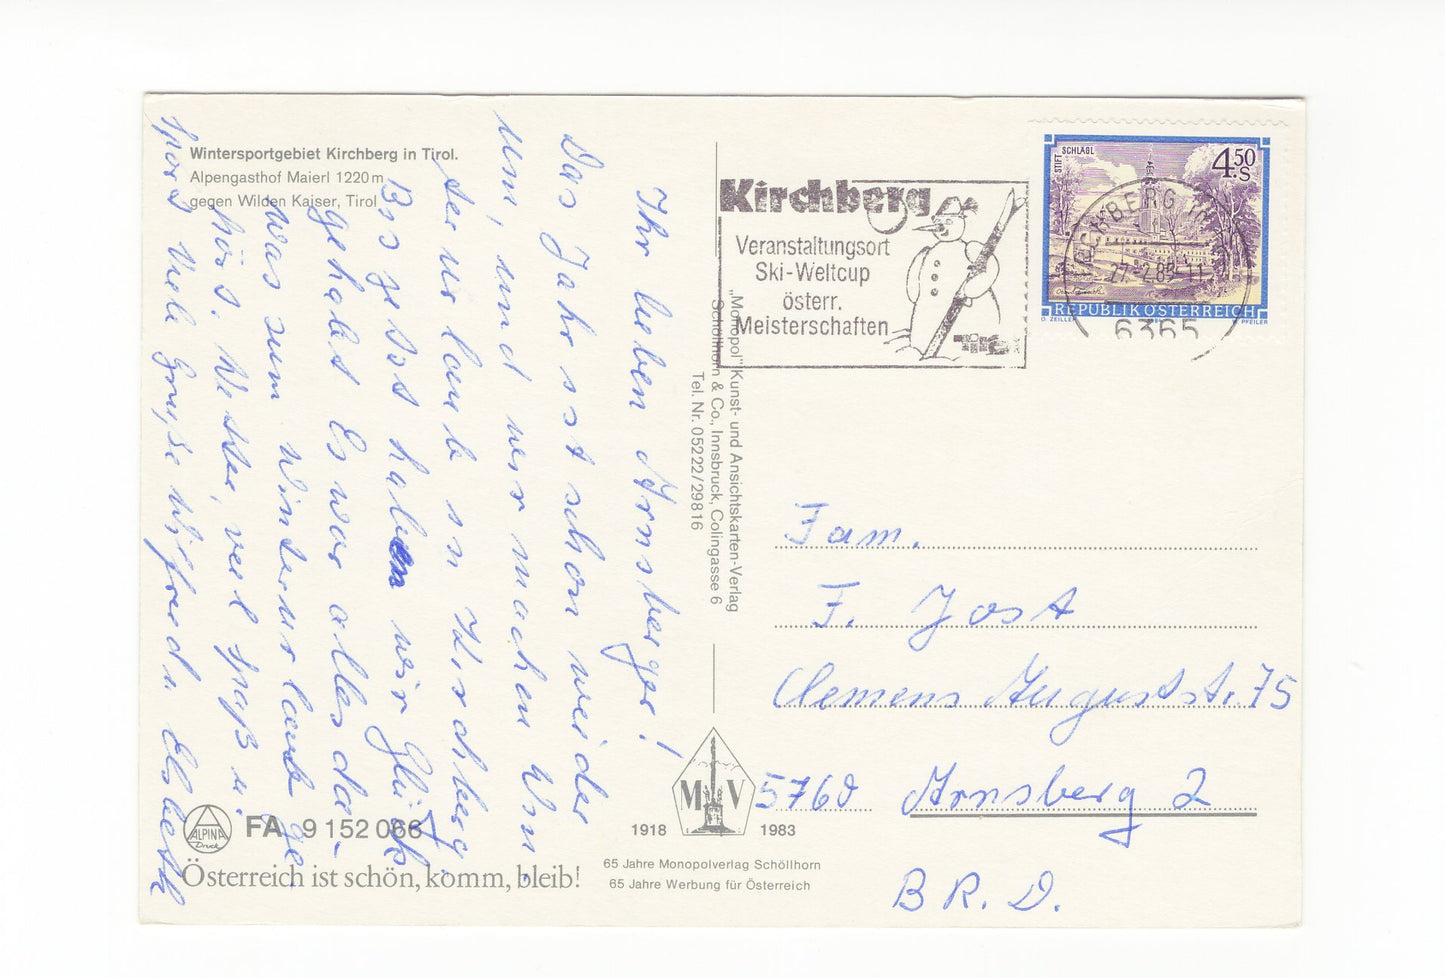 Wintersportgebiet Kirchberg in Tirol.
Alpengasthof Maierl 1220 m
gegen Wilden Kaiser, Tirol
Ihr lieben Arnsberger!
Das Jahr ist schon weider
um, und wir machen Win-
terurlaub in Kirchberg.
Bis jetzt haben wir Glück
gehabt. Es war alles da-
was zum Winterurlaub ge-
hört. Wetter, veel Spaß u.
Sport. Viele Grüße Wilfried u. Elsbeth
ALPINA
Druck
FA 9 152 066
Österreich ist schön, komm, bleib!
„Monopol" Kunst- und Ansichtskarten-Verlag
Schöllhorn & Co., Innsbruck, Colingasse 6
Tel. Nr. 05222/29816
M V
1918 1983
65 Jahre Monopolverlag Schöllhorn
65 Jahre Werbung für Österreich
Kirchberg
Veranstaltungsort
Ski-Weltcup
österr.
Meisterschaften
STIFT SCHLÄGL
4.50
S
REPUBLIK ÖSTERREICH
O. ZEILLER
PFEILER
KIRCHBERG in
27.-2.85-11
6365
Fam.
F. Jost
Clemens Auguststr. 75
5760 Arnsberg 2
B. R. D.